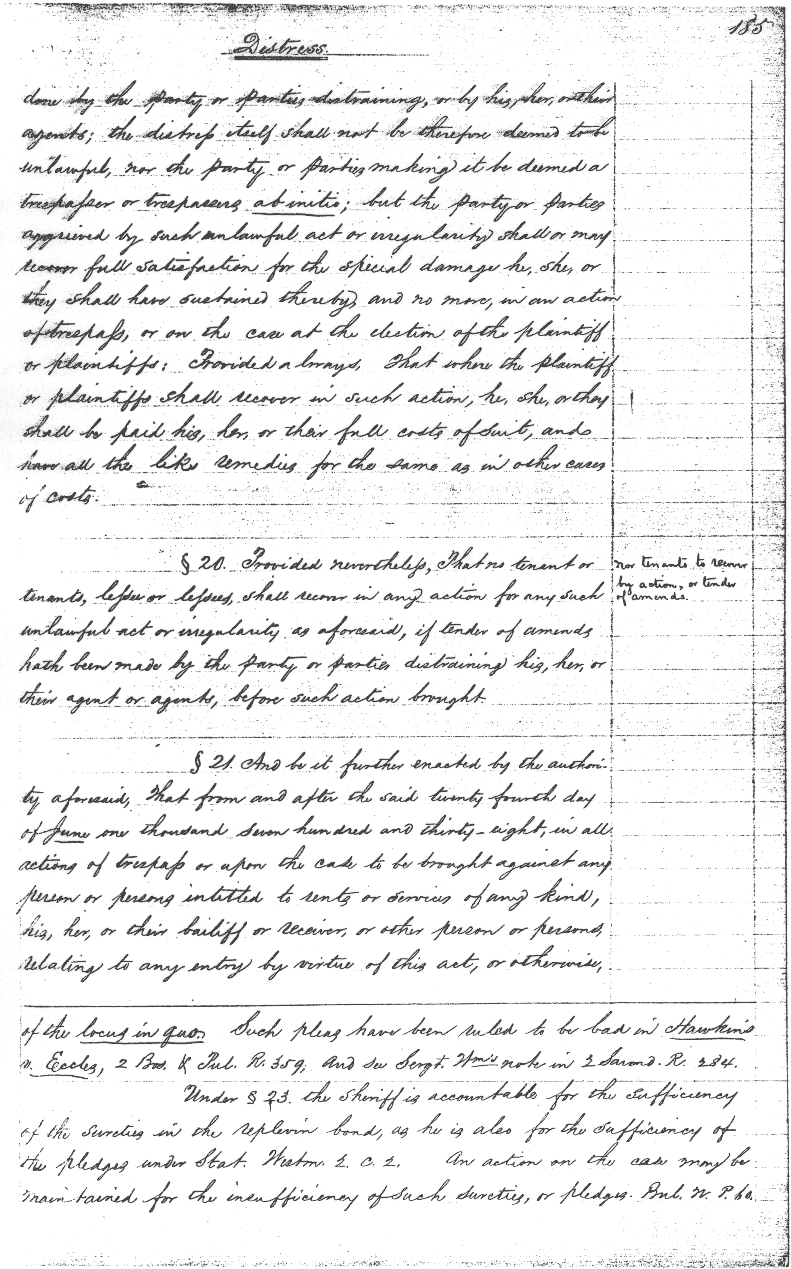 185
Distress.
done by the party or parties distraining, or by his, her, or their
agents; the distress itself shall not be therefore deemed to be
unlawful, nor the party or parties making it be deemed a
trespasser or trespassers ab initio; but the party or parties
aggrieved by such unlawful act or irregularity shall or may
recover full satisfaction for the special damage he, she, or
they shall have sustained thereby, and no more, in an action
of trespass, or on the case at the election of the plaintiff
or plaintiffs: Provided always, That where the plaintiff
or plaintiffs shall recover in such action, he, she, or they
shall be paid his, her, or their full costs of suit, and
have all the like remedies for the same as in other cases
of costs.
§ 20. Provided nevertheless, That no tenant or
tenants, lessee or lessees, shall recover in any action for any such
unlawful act or irregularity as aforesaid, if tender of amends
hath been made by the party or parties distraining his, her, or
their agent or agents, before such action brought.
nor tenants to recover
by action, or tender
of amends.
§ 21. And be it further enacted by the authori-
ty aforesaid, That from and after the said twenty fourth day
of June one thousand seven hundred and thirty-eight, in all
actions of trespass or upon the case to be brought against any
person or persons intitled to rents or services of any kind,
his, her, or their bailiff or receiver, or other person or persons,
relating to any entry by virtue of this act, or otherwise,
of the locus in quo. Such pleas have been ruled to be bad in Hawkins
v. Eccles, 2 Bos. & Pul. R. 359; And see Sergt. Wms note in 2 Saund. R. 284.
Under § 23. the sheriff is accountable for the sufficiency
of the sureties in the replevin bond, as he is also for the sufficiency of
the pledges under Stat. Westm. 2. c. 2. An action on the case may be
maintained for the insufficiency of such sureties, or pledges. Bul. N. P. 60.